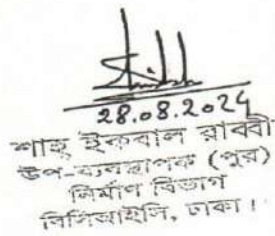 28.08.2024
শাহ্ ইকবাল রাব্বী
উপ-ব্যবস্থাপক (পুর)
নির্মাণ বিভাগ
বিসিআইসি, ঢাকা।